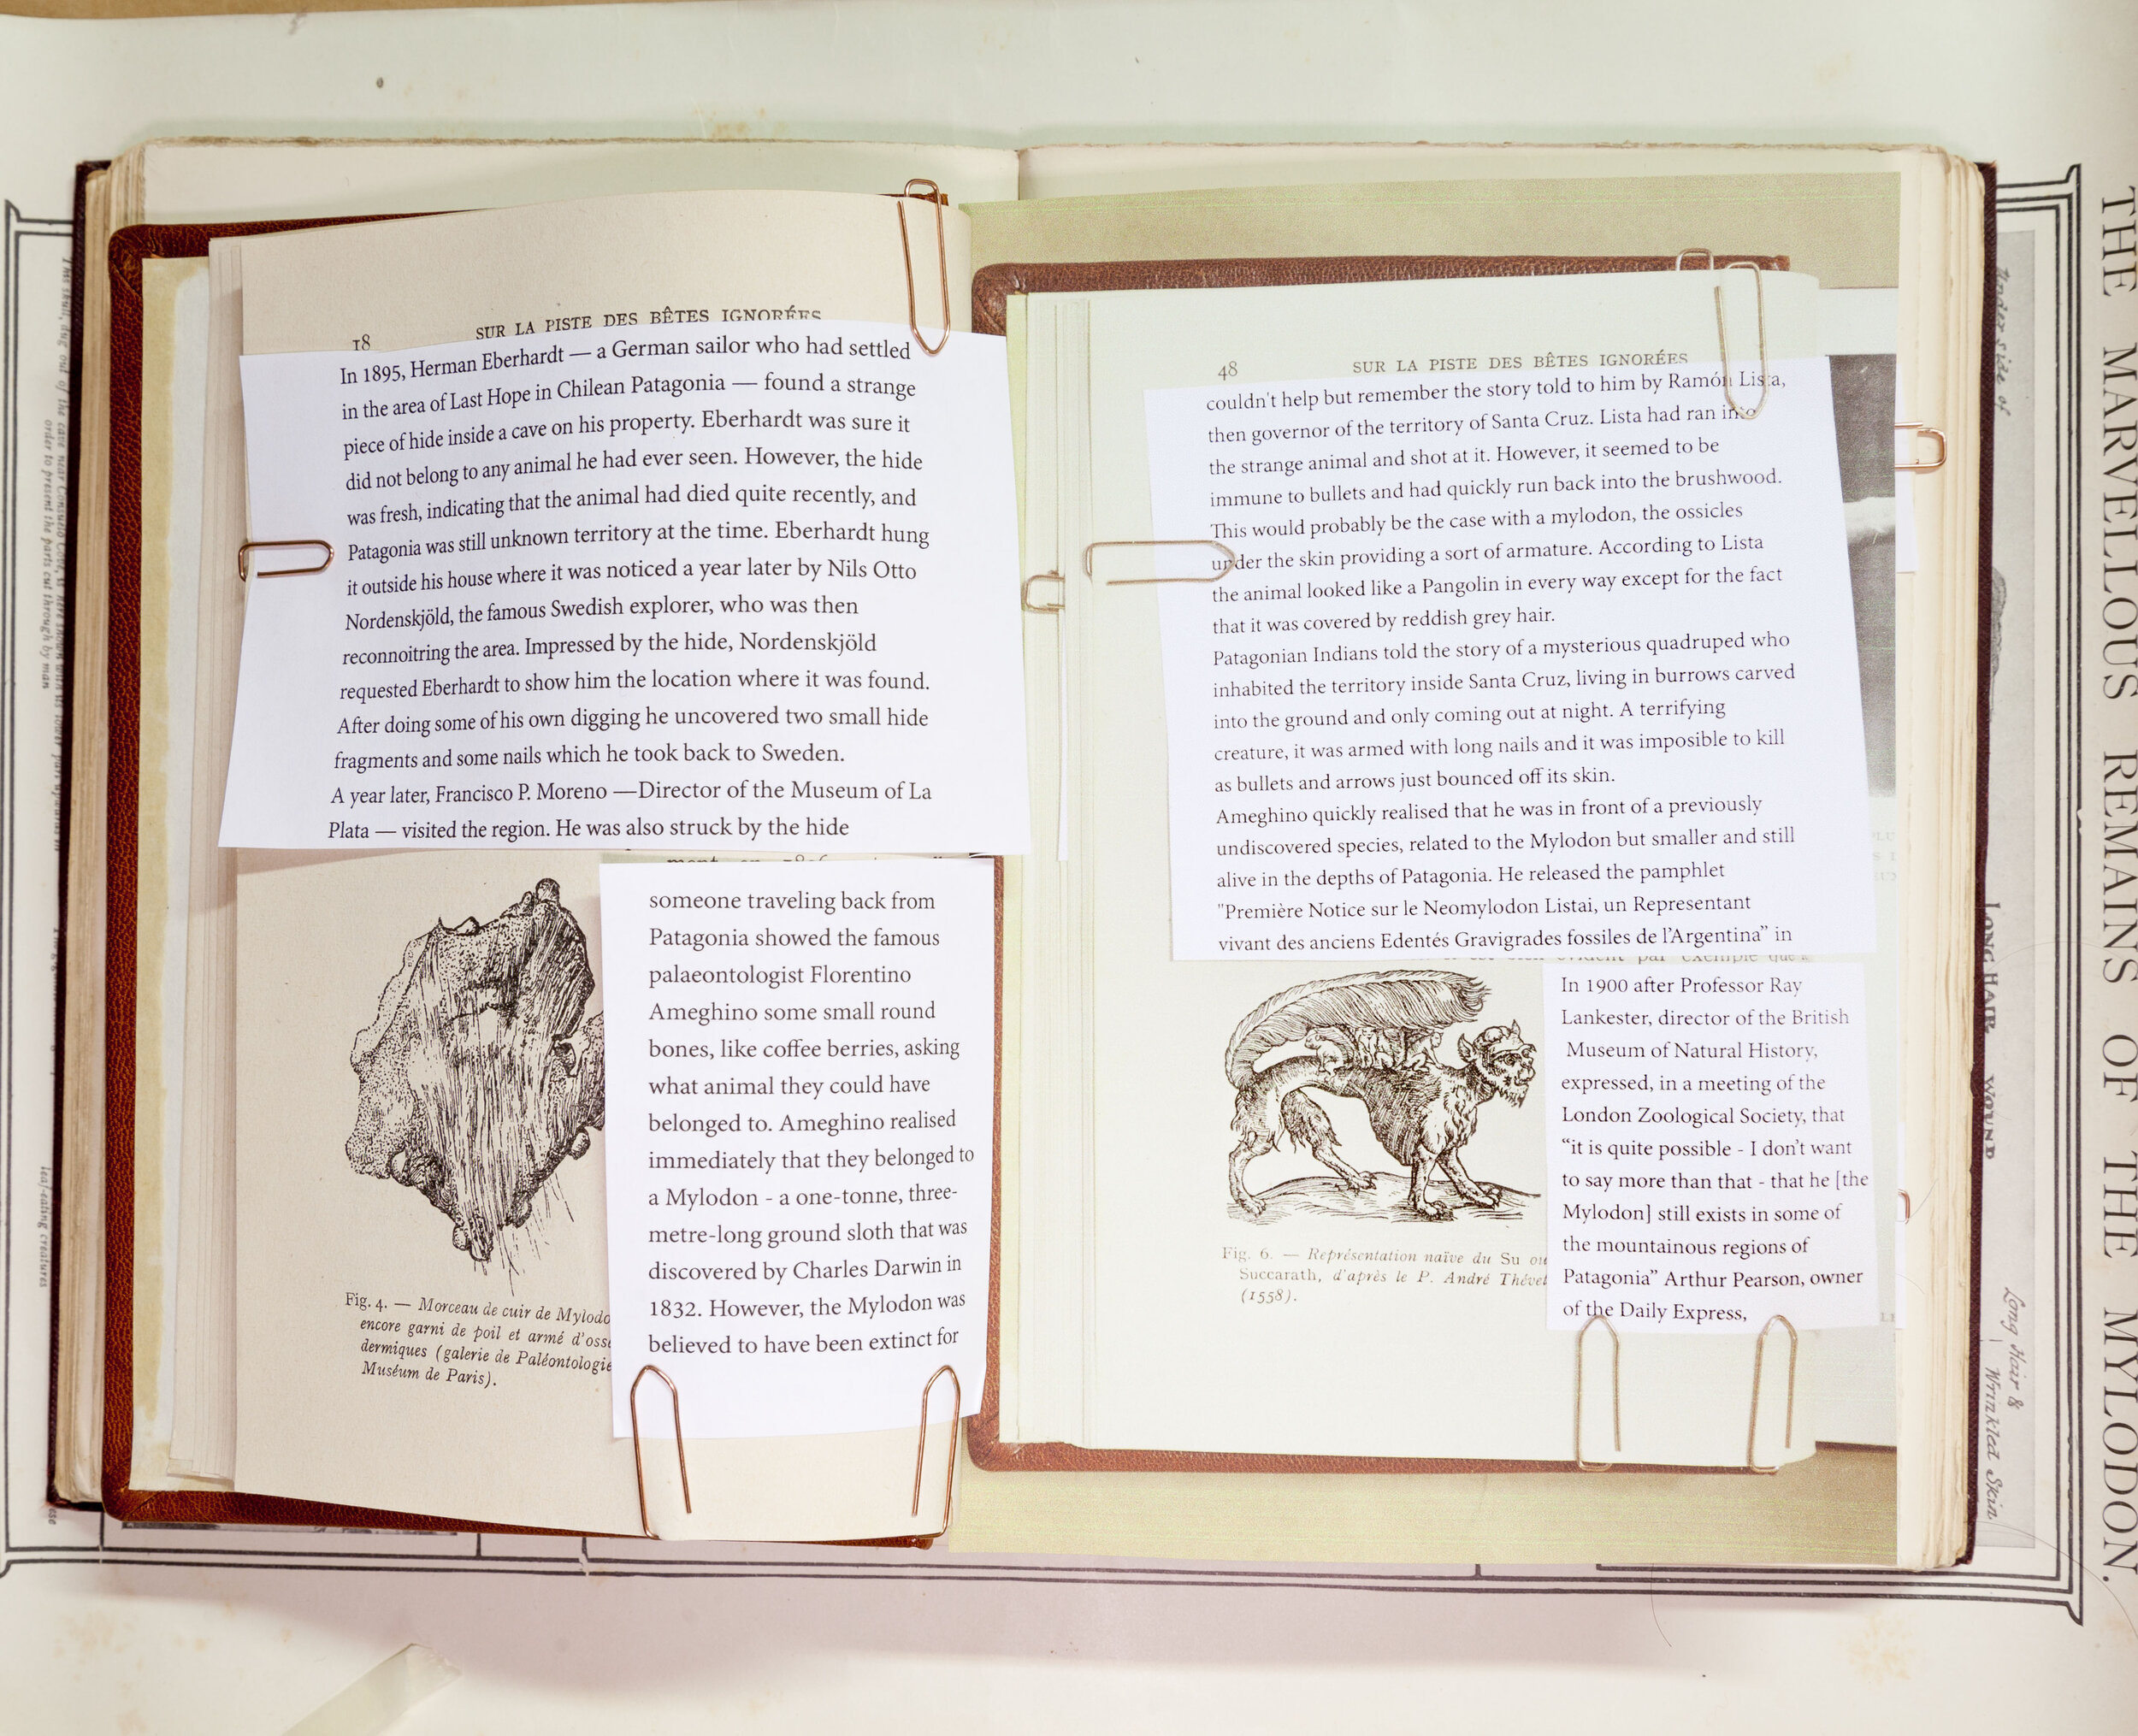 18
SUR LA PISTE DES BÊTES IGNORÉES
In 1895, Herman Eberhardt — a German sailor who had settled
in the area of Last Hope in Chilean Patagonia — found a strange
piece of hide inside a cave on his property. Eberhardt was sure it
did not belong to any animal he had ever seen. However, the hide
was fresh, indicating that the animal had died quite recently, and
Patagonia was still unknown territory at the time. Eberhardt hung
it outside his house where it was noticed a year later by Nils Otto
Nordenskjöld, the famous Swedish explorer, who was then
reconnoitring the area. Impressed by the hide, Nordenskjöld
requested Eberhardt to show him the location where it was found.
After doing some of his own digging he uncovered two small hide
fragments and some nails which he took back to Sweden.
A year later, Francisco P. Moreno —Director of the Museum of La
Plata — visited the region. He was also struck by the hide
someone traveling back from
Patagonia showed the famous
palaeontologist Florentino
Ameghino some small round
bones, like coffee berries, asking
what animal they could have
belonged to. Ameghino realised
immediately that they belonged to
a Mylodon - a one-tonne, three-
metre-long ground sloth that was
discovered by Charles Darwin in
1832. However, the Mylodon was
believed to have been extinct for
Fig. 4. — Morceau de cuir de Mylodo
encore garni de poil et armé d'oss
dermiques (galerie de Paléontologie
Muséum de Paris).
48
SUR LA PISTE DES BÊTES IGNORÉES
couldn't help but remember the story told to him by Ramón Lista,
then governor of the territory of Santa Cruz. Lista had ran into
the strange animal and shot at it. However, it seemed to be
immune to bullets and had quickly run back into the brushwood.
This would probably be the case with a mylodon, the ossicles
under the skin providing a sort of armature. According to Lista
the animal looked like a Pangolin in every way except for the fact
that it was covered by reddish grey hair.
Patagonian Indians told the story of a mysterious quadruped who
inhabited the territory inside Santa Cruz, living in burrows carved
into the ground and only coming out at night. A terrifying
creature, it was armed with long nails and it was imposible to kill
as bullets and arrows just bounced off its skin.
Ameghino quickly realised that he was in front of a previously
undiscovered species, related to the Mylodon but smaller and still
alive in the depths of Patagonia. He released the pamphlet
"Première Notice sur le Neomylodon Listai, un Representant
vivant des anciens Edentés Gravigrades fossiles de l'Argentina” in
In 1900 after Professor Ray
Lankester, director of the British
Museum of Natural History,
expressed, in a meeting of the
London Zoological Society, that
“it is quite possible - I don't want
to say more than that - that he [the
Mylodon] still exists in some of
the mountainous regions of
Patagonia” Arthur Pearson, owner
of the Daily Express,
Fig. 6. — Représentation naïve du Su ou
Succarath, d'après le P. André Thévet
(1558).
THE MARVELLOUS REMAINS OF THE MYLODON.
LONG HAIR WOUND
Long Hair &
Wrinkled Skin
Under side of
order to present the parts cut through by man
leaf-eating creatures